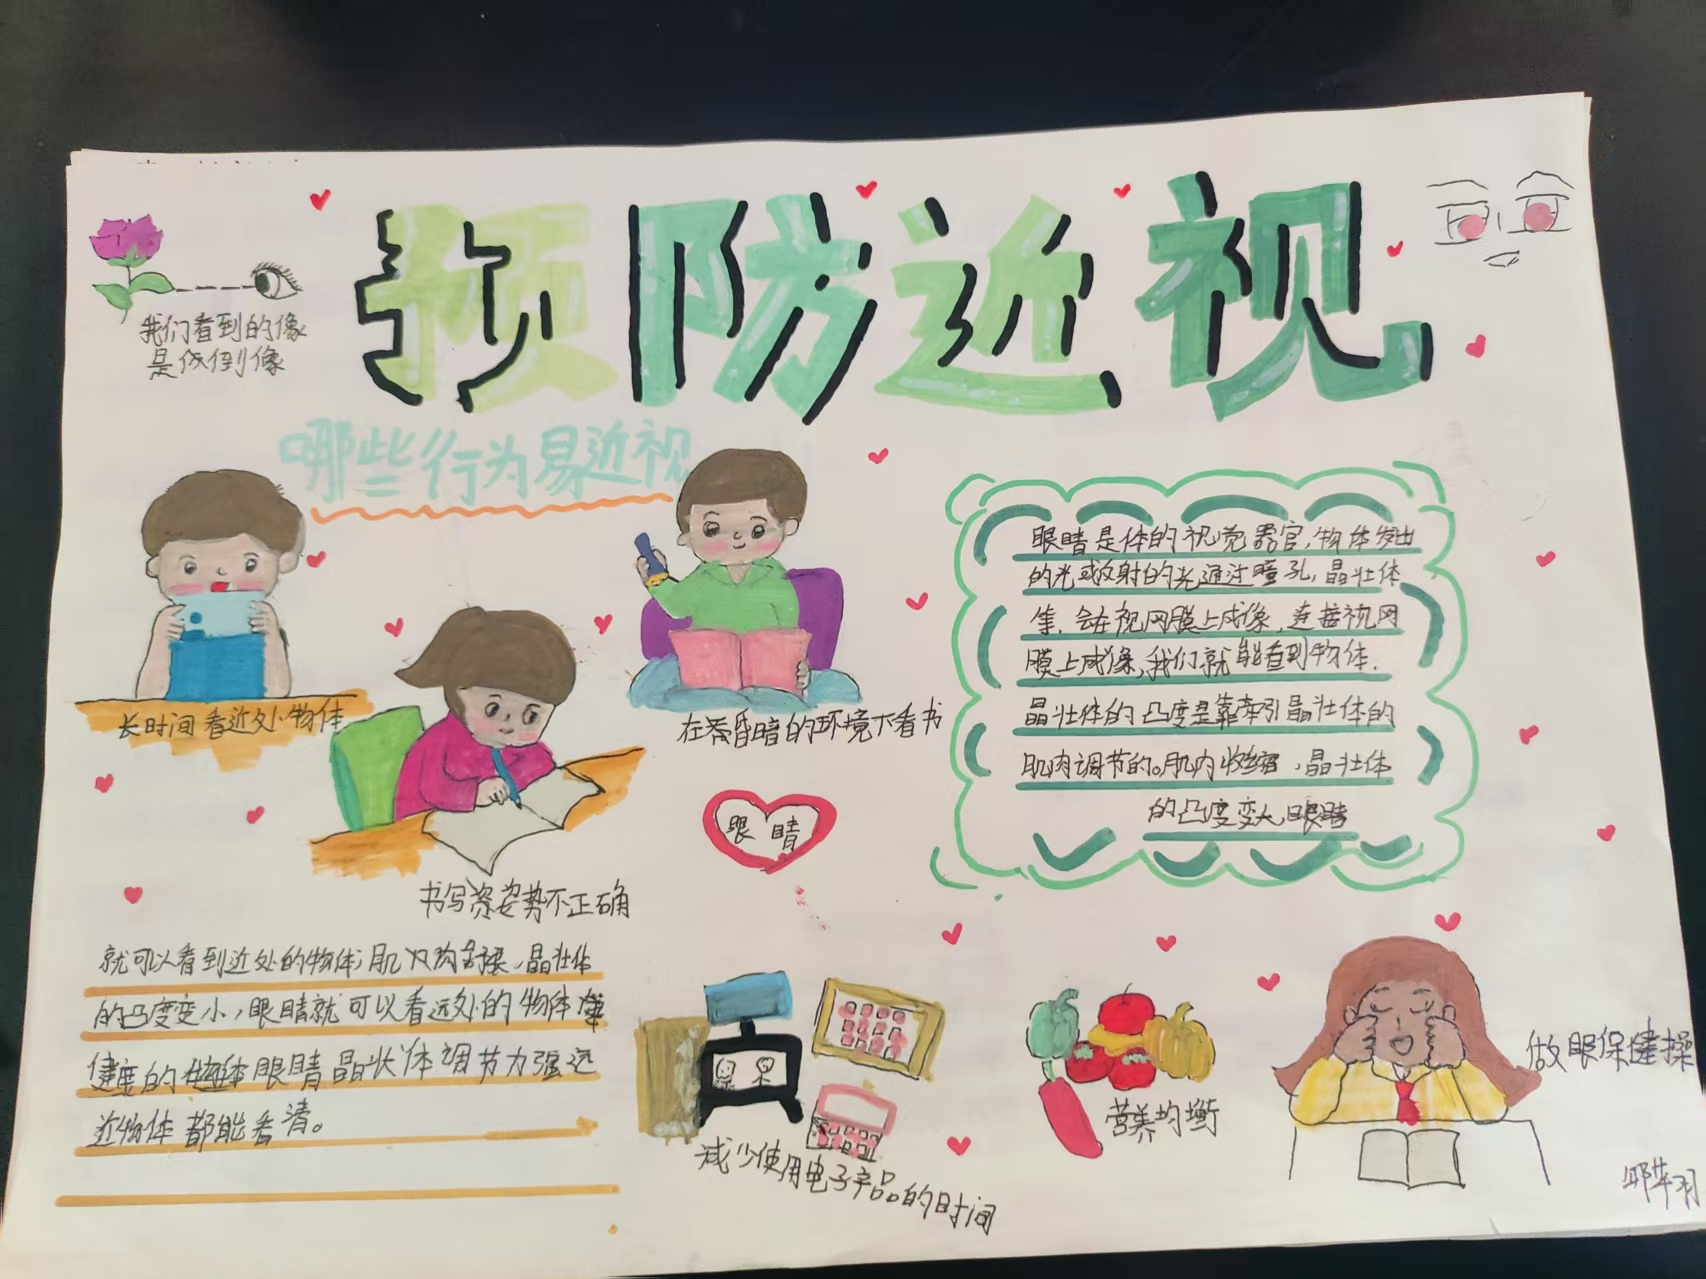 预防近视
我们看到的像
是倒像
哪些行为易近视
长时间看近处物体
在昏暗的环境下看书
书写姿势不正确
眼睛
眼睛是体的视觉器官,物体发出
的光或放射的光通过瞳孔,晶壮体
等,会在视网膜上成像,连接视网
膜上成像,我们就能看到物体.
晶壮体的凸度是靠牵引晶壮体的
肌肉调节的。肌内收缩,晶壮体
的凸度变大,眼睛
就可以看到近处的物体;肌肉舒張,晶壮体
的凸度变小,眼睛就可以看远处的物体
健康的眼睛晶状体调节力强远
近物体都能看清。
减少使用电子产品的时间
营养均衡
做眼保健操